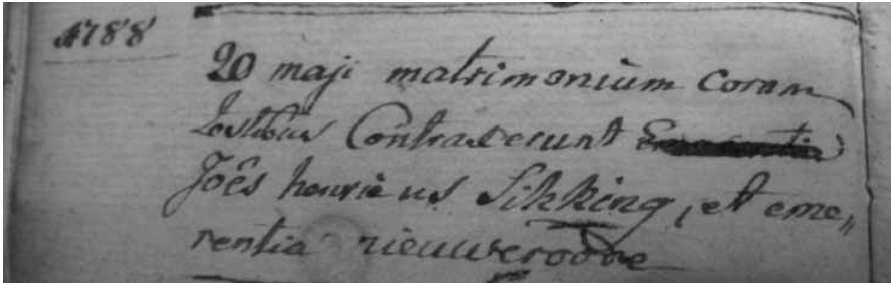 1788
20 maji matrimonium Coram
testibus Contraxerunt
Joês henricus Sikking, et eme„
rentia nieuweroode